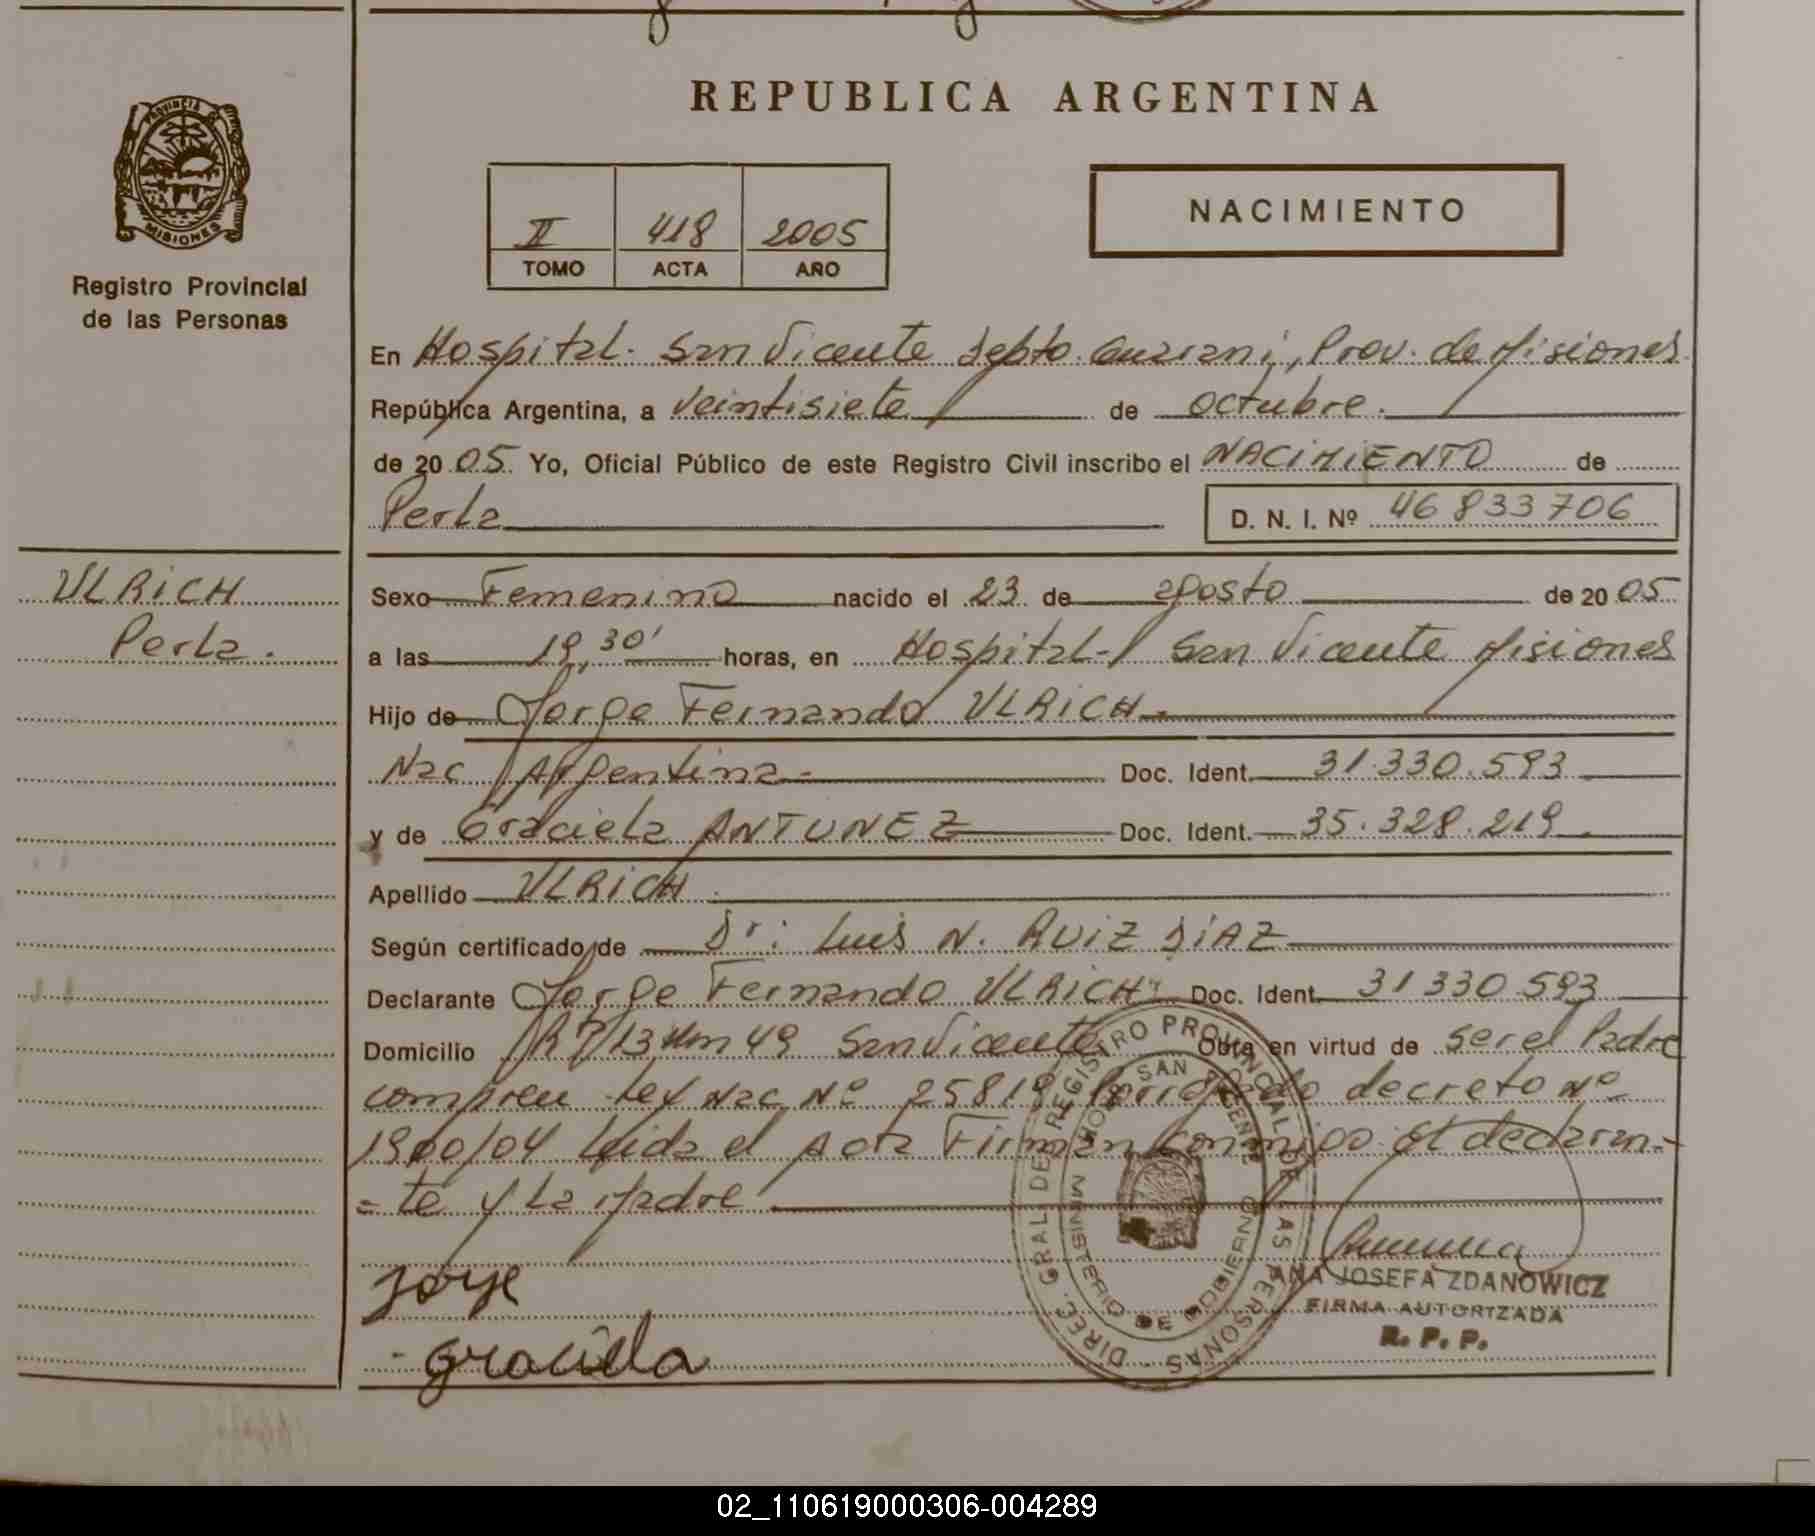 REPUBLICA ARGENTINA
PROVINCIA DE
MISIONES
Registro Provincial
de las Personas
II 418 2005
TOMO ACTA AÑO
NACIMIENTO
En Hospital - San Vicente Depto. Guarani, Prov. de Misiones
República Argentina, a veintisiete de octubre.
de 20 05. Yo, Oficial Público de este Registro Civil inscribo el NACIMIENTO de
Perla
D. N. I. Nº 46 833 706
ULRICH
Perla.
Sexo Femenino nacido el 23 de agosto de 20 05
a las 19,30' horas, en Hospital - San Vicente Misiones
Hijo de Jorge Fernando ULRICH
Nac Argentina Doc. Ident. 31.330.593
y de Graciela ANTUNEZ Doc. Ident. 35.328.219
Apellido ULRICH
Según certificado de Dr: Luis N. RUIZ DIAZ
Declarante Jorge Fernando ULRICH Doc. Ident. 31 330 593
Domicilio RP/13 Km 49 San Vicente Obra en virtud de ser el Padre
Ley Nac Nº 25819 decreto Nº
1900/04 Leida el Acta Firman conmigo el declaran-
= te y La Madre
Jorge
Graciela
DIREC. GRAL. DE REGISTRO PROVINCIAL DE LAS PERSONAS
MINISTERIO DE GOBIERNO
HOSP. SAN VICENTE
ANA JOSEFA ZDANOWICZ
FIRMA AUTORIZADA
R. P. P.
02_110619000306-004289